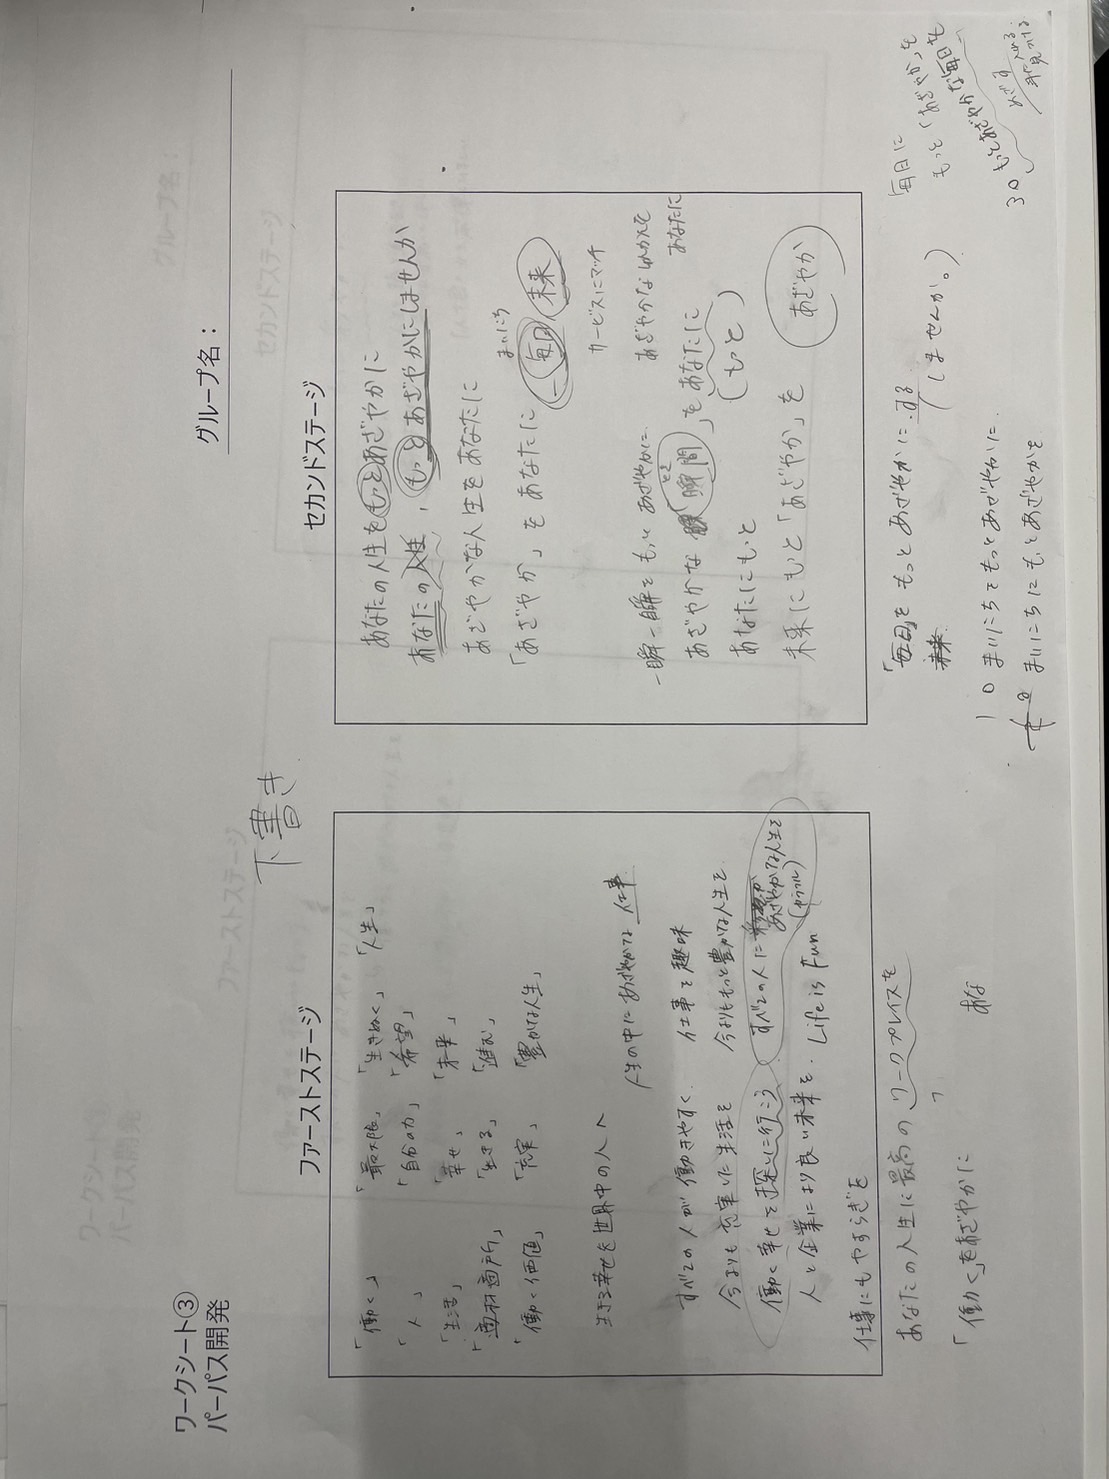 ワークシート③
パーパス開発
グループ名：
下書き
ファーストステージ
「働く」 「最大限」 「生きぬく」 「人生」
「人」 「自分の力」 「希望」
「生活」 「幸せ」 「未来」
「適材適所」 「生きる」 「進む」
「働く価値」 「充実」 「豊かな人生」
生きる幸せを世界中の人へ
人生の中にあざやかな仕事
すべての人が働きやすく 仕事を趣味
今よりも充実した生活を 今よりももっと豊かな人生を
働く幸せを探しに行こう すべての人に
あざやかな人生を
(カラフル)
人と企業により良い未来を Life is Fun
仕事にもやすらぎを
あなたの人生に最高のワークプレイスを
「働く」をあざやかに あな
セカンドステージ
あなたの人生をもっとあざやかに
あなたの人生、もっとあざやかにしませんか
あざやかな人生をあなたに
まいにち
「あざやか」をあなたに 毎日 未来
サービスにマッチ
一瞬一瞬をもっとあざやかに あざやかなしゅんかんを
あなたに
とき
あざやかな瞬間」をあなたに
あなたにもっと (もっと)
未来にもっと「あざやか」を あざやか
「毎日」をもっとあざやかにする
未来 (しませんか。)
10 まいにちをもっとあざやかに
まいにちにもっとあざやかを
毎日に
もっと「あざやか」を
30 もっとあざやかな毎日を
めざす
手に入れる
見つける